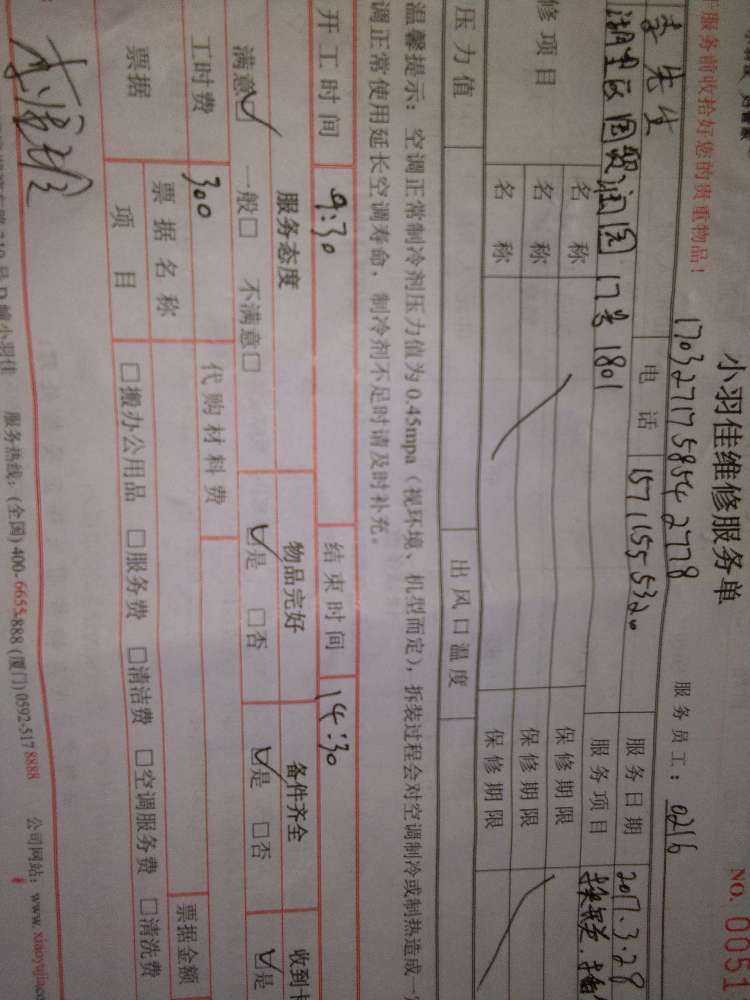 小羽佳维修服务单
NO. 0051
服务前收拾好您的贵重物品！
17032717 5854 2778
服务员工：0216
李先生 电话 15711555320 服务日期 2017.3.28
湖里区国贸润园17号1801 服务项目 换开关.
修项目 名称 保修期限
名称 保修期限
名称 保修期限
压力值 出风口温度
温馨提示：空调正常制冷剂压力值为 0.45mpa（视环境、机型而定），拆装过程会对空调制冷或制热造成一
调正常使用延长空调寿命，制冷剂不足时请及时补充。
开工时间 9:30 结束时间 14:30
服务态度 物品完好 备件齐全 收到
满意☑ 一般☐ 不满意☐ ☑是 ☐否 ☑是 ☐否 ☑是
工时费 300 代购材料费
票据 票据名称 票据金额
项目 ☐搬办公用品 ☐服务费 ☐清洁费 ☐空调服务费 ☐清洗费
小羽佳 服务热线：(全国) 400-6655-888 (厦门) 0592-517 8888 公司网站：www.xiaoyujia.co